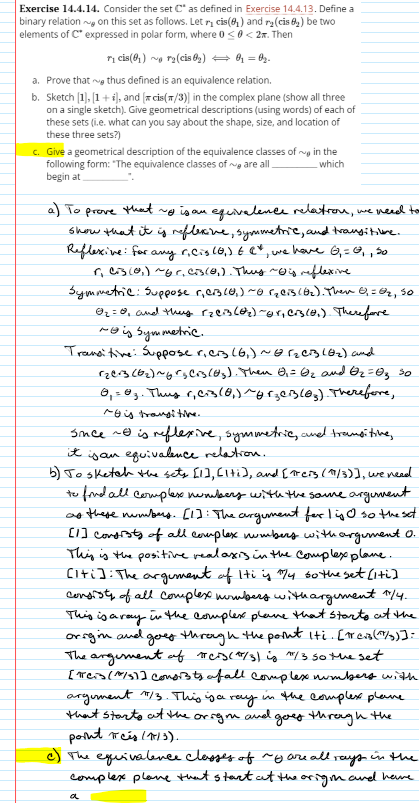 Exercise 14.4.14. Consider the set C* as defined in Exercise 14.4.13. Define a
binary relation ~θ on this set as follows. Let r₁ cis(θ₁) and r₂(cis θ₂) be two
elements of C* expressed in polar form, where 0 ≤ θ < 2π. Then
r₁ cis(θ₁) ~θ r₂(cis θ₂) ⟺ θ₁ = θ₂.
a. Prove that ~θ thus defined is an equivalence relation.
b. Sketch [1], [1 + i], and [π cis(π/3)] in the complex plane (show all three
on a single sketch). Give geometrical descriptions (using words) of each of
these sets (i.e. what can you say about the shape, size, and location of
these three sets?)
c. Give a geometrical description of the equivalence classes of ~θ in the
following form: "The equivalence classes of ~θ are all ________ which
begin at ________".
a) To prove that ~θ is an equivalence relation, we need to
show that it is reflexive, symmetric, and transitive.
Reflexive: For any r₁cis(θ₁) ∈ C*, we have θ₁=θ₁, so
r₁ cis(θ₁) ~θ r₁ cis(θ₁). Thus ~θ is reflexive
Symmetric: Suppose r₁cis(θ₁) ~θ r₂cis(θ₂). Then θ₁=θ₂, so
θ₂=θ₁ and thus r₂cis(θ₂) ~θ r₁cis(θ₁). Therefore
~θ is symmetric.
Transitive: Suppose r₁cis(θ₁) ~θ r₂cis(θ₂) and
r₂cis(θ₂) ~θ r₃cis(θ₃). Then θ₁=θ₂ and θ₂=θ₃ so
θ₁=θ₃. Thus r₁cis(θ₁) ~θ r₃cis(θ₃). Therefore,
~θ is transitive.
Since ~θ is reflexive, symmetric, and transitive,
it is an equivalence relation.
b) To sketch the sets [1], [1+i], and [πcis(π/3)], we need
to find all complex numbers with the same argument
as these numbers. [1]: The argument for 1 is 0 so the set
[1] consists of all complex numbers with argument 0.
This is the positive real axis in the complex plane.
[1+i]: The argument of 1+i is π/4 so the set [1+i]
consists of all complex numbers with argument π/4.
This is a ray in the complex plane that starts at the
origin and goes through the point 1+i. [πcis(π/3)]:
The argument of πcis(π/3) is π/3 so the set
[πcis(π/3)] consists of all complex numbers with
argument π/3. This is a ray in the complex plane
that starts at the origin and goes through the
point πcis(π/3).
c) The equivalence classes of ~θ are all rays in the
complex plane that start at the origin and have
a